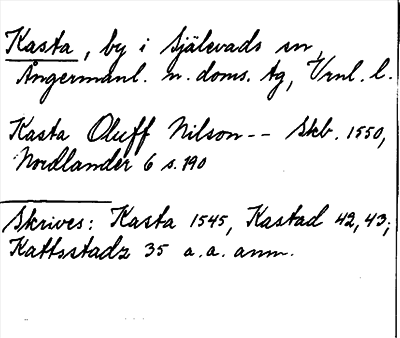 Kasta, by i Själevads sn,
Ångermanl. n. doms. tg, Vrnl. l.
Kasta Oluff Nilson-- Skb. 1550,
Nordlander 6 s. 190
Skrives: Kasta 1545, Kastad 42, 43;
Kattsstadz 35 a. a. anm.